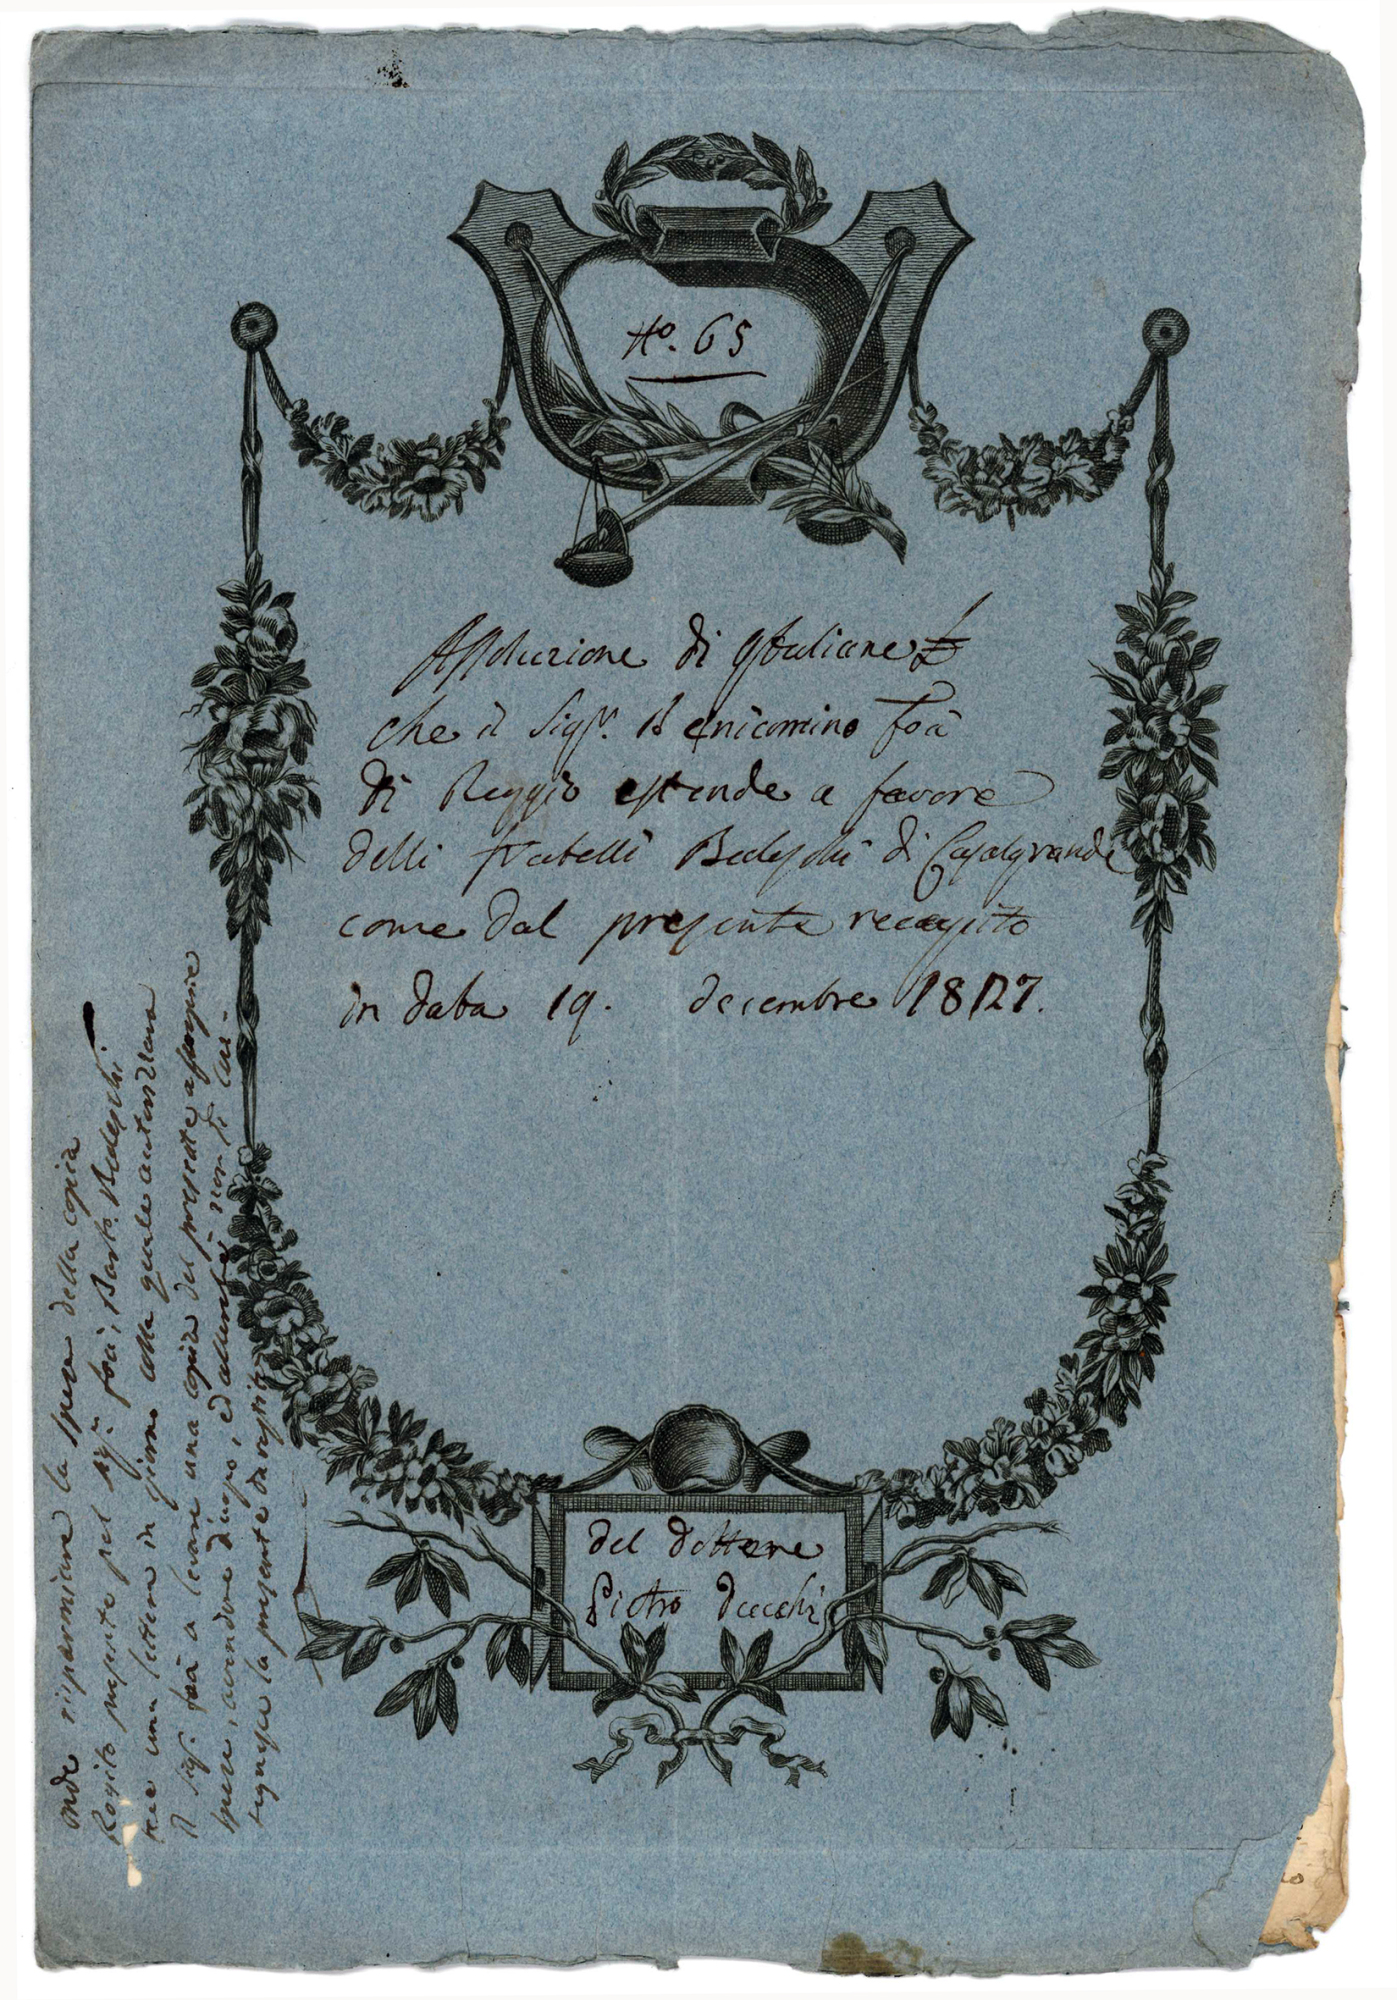 No. 65
Assoluzione di Italiane £
che il Sigr. Beniamino Foà
di Reggio estende a favore
delli fratelli Bedeschi di Casalgrande
come dal presente recapito
in data 19. decembre 1827.
del dottore
Pietro
onde risparmiare la spesa della copia
Rogito presente pel Sigr. foà, Barto. Bedeschi
una lettera in giorno alla quale
il Sigr. foà a levare una copia del presente a proprie
spese, avendone duopo, ed allorché non si
segnasse la presente da